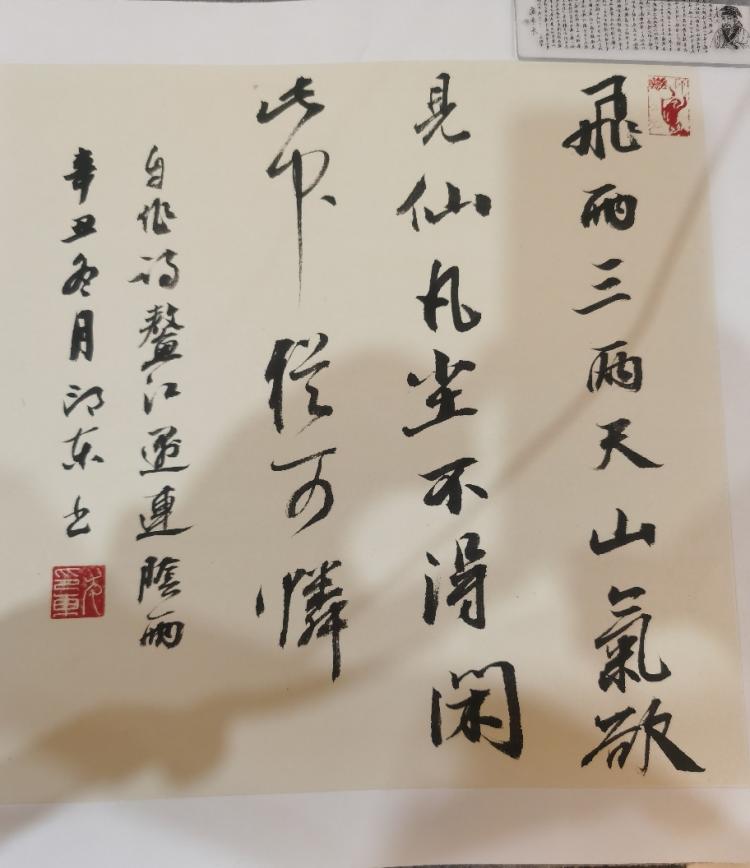 飛雨三兩天山氣欲
見仙凡坐不得閑
此從可憐
自作詩鰲江遇連陰雨
辛丑冬月印东书